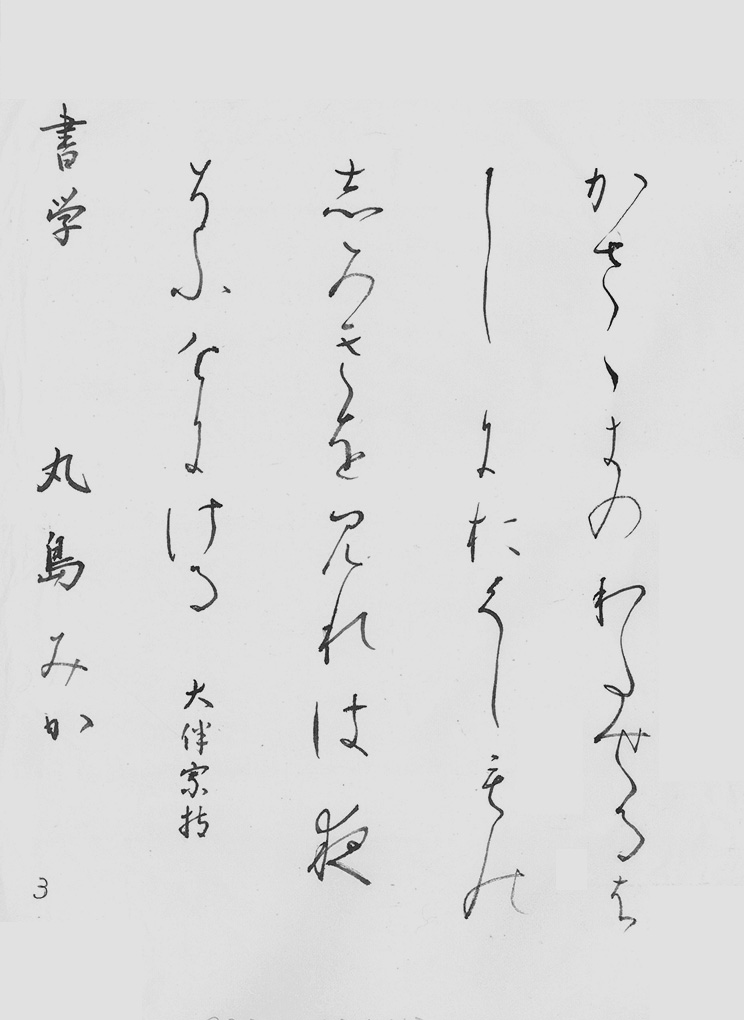 かさゝきのわたせるは
しにおくしもの
志ろきを見れは夜
そふけにける 大伴家持
書学 丸島みか 3